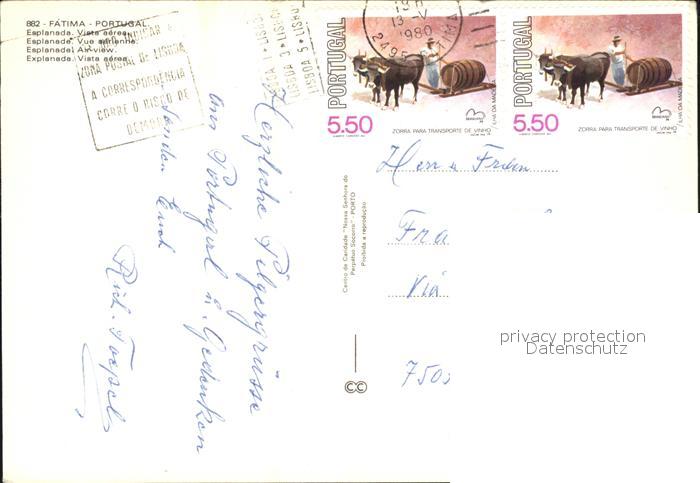 882 - FÁTIMA - PORTUGAL
Esplanada. Vista aérea.
Esplanade. Vue aérienne.
Esplanade. Air view.
Explanada. Vista aérea.
ZONA POSTAL DE LISBOA
A CORRESPONDÊNCIA
CORRE O RISCO DE
LISBOA 5 • LISBOA
13 -V
1980
PORTUGAL
5.50
ZORRA PARA TRANSPORTE DE VINHO
ILHA DA MADEIRA
PORTUGAL
5.50
ZORRA PARA TRANSPORTE DE VINHO
ILHA DA MADEIRA
Herzliche Pilgergrüsse
aus Portugal u. Gedenken
senden Euch
Rich. Toepel
Centro de Caridade "Nossa Senhora do
Perpétuo Socorro" - PORTO
Proibida a reprodução
CC
Herr u Frau
Fra
Via
750
privacy protection
Datenschutz